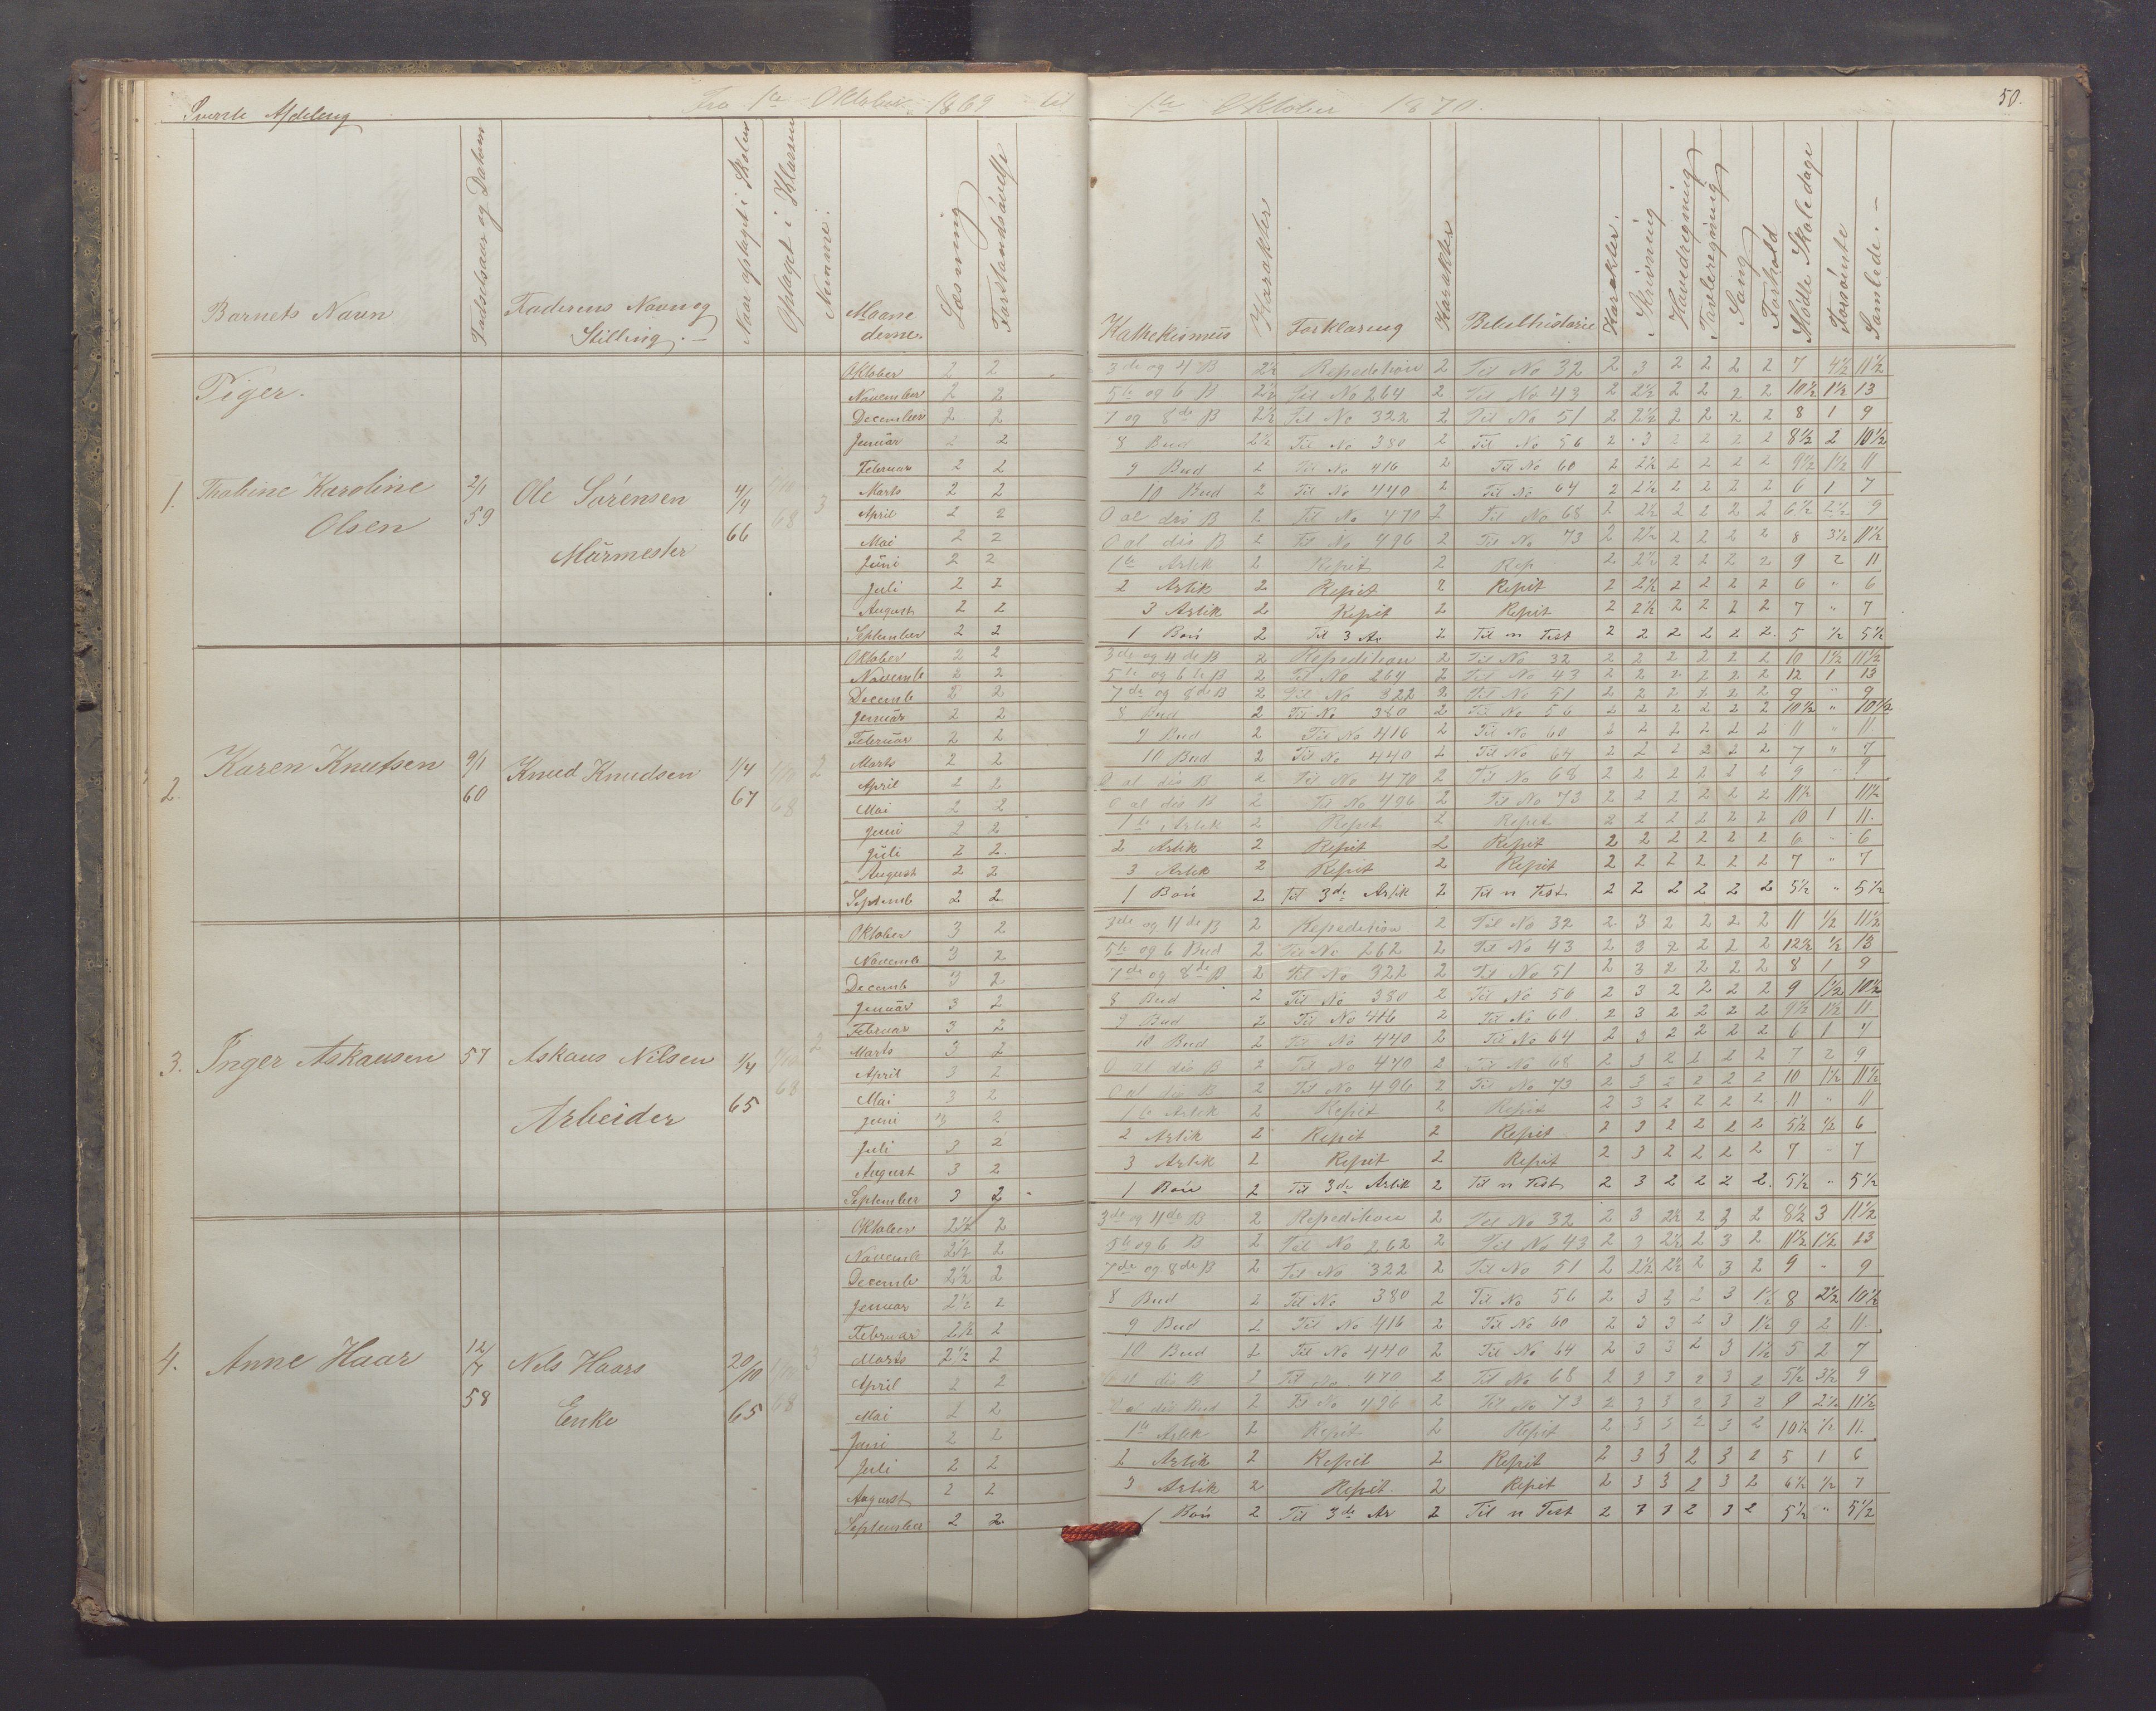 Øverste Afdeling
Fra 1te Oktober 1869 til 1te Oktober 1870.
50.
Barnets Navn | Fødselsaar og Datum | Faderens Navn og Stilling. | Naar optaget i Skolen | Optaget i Klassen | Numme. | Maanederne. | Læsning | Forstandsøvelse | Kathekismus | Karakter | Forklaring | Karakter | Bibelhistorie | Karakter. | Skrivning | Hovedregning | Tavleregning | Sang | Forhold | Mødte Skoledage | Forsømte | Samlede.
Piger.
1. Thaline Karoline Olsen | 2/1 59 | Ole Sørensen Murmester | 4/4 66 | 68 | 3
Oktober 2 2 | 3de og 4 B 2½ | Repedition 2 | Til No 32 2 | 3 2 2 2 2 | 7 4½ 11½
November 2 2 | 5te og 6 B 2½ | Til No 264 2 | Til No 43 2 | 2½ 2 2 2 2 | 10½ 1½ 13
December 2 2 | 7 og 8de B 2½ | Til No 322 2 | Til No 51 2 | 2½ 2 2 2 2 | 8 1 9
Januar 2 2 | 8 Bud 2½ | Til No 380 2 | Til No 56 2 | 3 2 2 2 2 | 8½ 2 10½
Februar 2 2 | 9 Bud 2 | Til No 416 2 | Til No 60 2 | 2½ 2 2 2 2 | 9½ 1½ 11
Marts 2 2 | 10 Bud 2 | Til No 440 2 | Til No 64 2 | 2½ 2 2 2 2 | 6 1 7
April 2 2 | O al dis B 2 | Til No 470 2 | Til No 68 2 | 2½ 2 2 2 2 | 6½ 2½ 9
Mai 2 2 | O al dis B 2 | Til No 496 2 | Til No 73 2 | 2½ 2 2 2 2 | 8 3½ 11½
Juni 2 2 | 1te Artik 2 | Repit 2 | Rep 2 | 2½ 2 2 2 2 | 9 2 11
Juli 2 2 | 2 Artik 2 | Repit 2 | Repit 2 | 2½ 2 2 2 2 | 6 " 6
August 2 2 | 3 Artik 2 | Repit 2 | Repit 2 | 2½ 2 2 2 2 | 7 " 7
September 2 2 | 1 Bøn 2 | Til 3 Ar 2 | Til n Test 2 | 2 2 2 2 2. | 5 ½ 5½
2. Karen Knutsen | 9/1 60 | Knud Knudsen | 1/4 67 | 68 | 2
Oktober 2 2 | 3de og 4de B 2 | Repedition 2 | Til No 32 2 | 2 2 2 2 2 | 10 1½ 11½
Novembe 2 2 | 5te og 6te B 2 | Til No 264 2 | Til No 43 2 | 2 2 2 2 2 | 12 1 13
Decemb 2 2 | 7de og 8de B 2 | Til No 322 2 | Til No 51 2 | 2 2 2 2 2 | 9 " 9
Januar 2 2 | 8 Bud 2 | Til No 380 2 | Til No 56 2 | 2 2 2 2 2 | 10½ " 10½
Februar 2 2 | 9 Bud 2 | Til No 416 2 | Til No 60 2 | 2 2 2 2 2 | 11 " 11
Marts 2 2 | 10 Bud 2 | Til No 440 2 | Til No 64 2 | 2 2 2 2 2 | 7 " 7
April 2 2 | O al dis B 2 | Til No 470 2 | Til No 68 2 | 2 2 2 2 2 | 9 " 9
Mai 2 2 | O al dis B 2 | Til No 496 2 | Til No 73 2 | 2 2 2 2 2 | 11½ 11½
Juni 2 2 | 1te Artik 2 | Repit 2 | Repit 2 | 2 2 2 2 2 | 10 1 11.
Juli 2 2. | 2 Artik 2 | Repit 2 | Repit 2 | 2 2 2 2 2 | 6 " 6
August 2 2 | 3 Artik 2 | Repit 2 | Repit 2 | 2 2 2 2 2 | 7 " 7
Septemb 2 2 | 1 Bøn 2 | Til 3de Artik 2 | Til n Test 2 | 2 2 2 2 2 | 5½ " 5½
3. Inger Askausen | 57 | Askaus Nilsen Arbeider | 1/4 65 | 68 | 2
Oktober 3 2 | 3de og 4de B 2 | Repedition 2 | Til No 32 2 | 3 2 2 2 2 | 11 ½ 11½
Novembe 3 2 | 5te og 6 Bud 2 | Til No 262 2 | Til No 43 2 | 3 2 2 2 2 | 12½ ½ 13
Decemb 3 2 | 7de og 8de B 2 | Til No 322 2 | Til No 51 2 | 3 2 2 2 2 | 8 1 9
Januar 3 2 | 8 Bud 2 | Til No 380 2 | Til No 56 2 | 3 2 2 2 2 | 9 1½ 10½
Februar 3 2 | 9 Bud 2 | Til No 416 2 | Til No 60 2 | 3 2 2 2 2 | 9½ 1½ 11
Marts 3 2 | 10 Bud 2 | Til No 440 2 | Til No 64 2 | 3 2 2 2 2 | 6 1 7
April 3 2 | O al dis B 2 | Til No 470 2 | Til No 68 2 | 3 2 2 2 2 | 7 2 9
Mai 3 2 | O al dis B 2 | Til No 496 2 | Til No 73 2 | 3 2 2 2 2 | 10 1½ 11½
Juni 3 2 | 1te Artik 2 | Repit 2 | Repit 2 | 3 2 2 2 2 | 11 " 11
Juli 3 2 | 2 Artik 2 | Repit 2 | Repit 2 | 3 2 2 2 2 | 5½ ½ 6
August 3 2 | 3 Artik 2 | Repit 2 | Repit 2 | 3 2 2 2 2 | 7 " 7
September 3 2 | 1 Bøn 2 | Til 3de Artik 2 | Til n Test 2 | 3 2 2 2 2. | 5½ " 5½
4. Anne Haar | 12/7 58 | Nels Haars Enke | 20/10 65 | 68 | 3
Oktober 2½ 2 | 3de og 4de B 2 | Repedition 2 | Til No 32 2 | 3 2½ 2 3 2 | 8½ 3 11½
Novemb 2½ 2 | 5te og 6 B 2 | Til No 262 2 | Til No 43 2 | 3 2½ 2 3 2 | 11½ 1½ 13
Decembe 2½ 2 | 7de og 8de B 2 | Til No 322 2 | Til No 51 2 | 2½ 2½ 2 3 2 | 9 " 9
Januar 2½ 2 | 8 Bud 2 | Til No 380 2 | Til No 56 2 | 3 3 2 3 1½ | 8 2½ 10½
Februar 2½ 2 | 9 Bud 2 | Til No 416 2 | Til No 60 2 | 3 3 2 3 1½ | 9 2 11.
Marts 2½ 2 | 10 Bud 2 | Til No 440 2 | Til No 64 2 | 3 3 2 3 1½ | 5 2 7
April 2 2 | O al dis B 2 | Til No 470 2 | Til No 68 2 | 3 3 2 3 2 | 5½ 3½ 9
Mai 2 2 | O al dis Bud 2 | Til No 496 2 | Til No 73 2 | 3 3 2 3 2 | 9 2½ 11½
Juni 2 2 | 1te Artik 2 | Repit 2 | Repit 2 | 3 3 2 3 2 | 10½ ½ 11.
Juli 2 2 | 2 Artik 2 | Repit 2 | Repit 2 | 3 3 2 3 2 | 5 1 6
August 2 2 | 3 Artik 2 | Repit 2 | Repit 2 | 3 3 2 3 2 | 6½ ½ 7
September 2 2. | 1 Bøn 2 | Til 3de Ar 2 | Til n Test 2 | 3 3 2 3 2 | 5½ " 5½